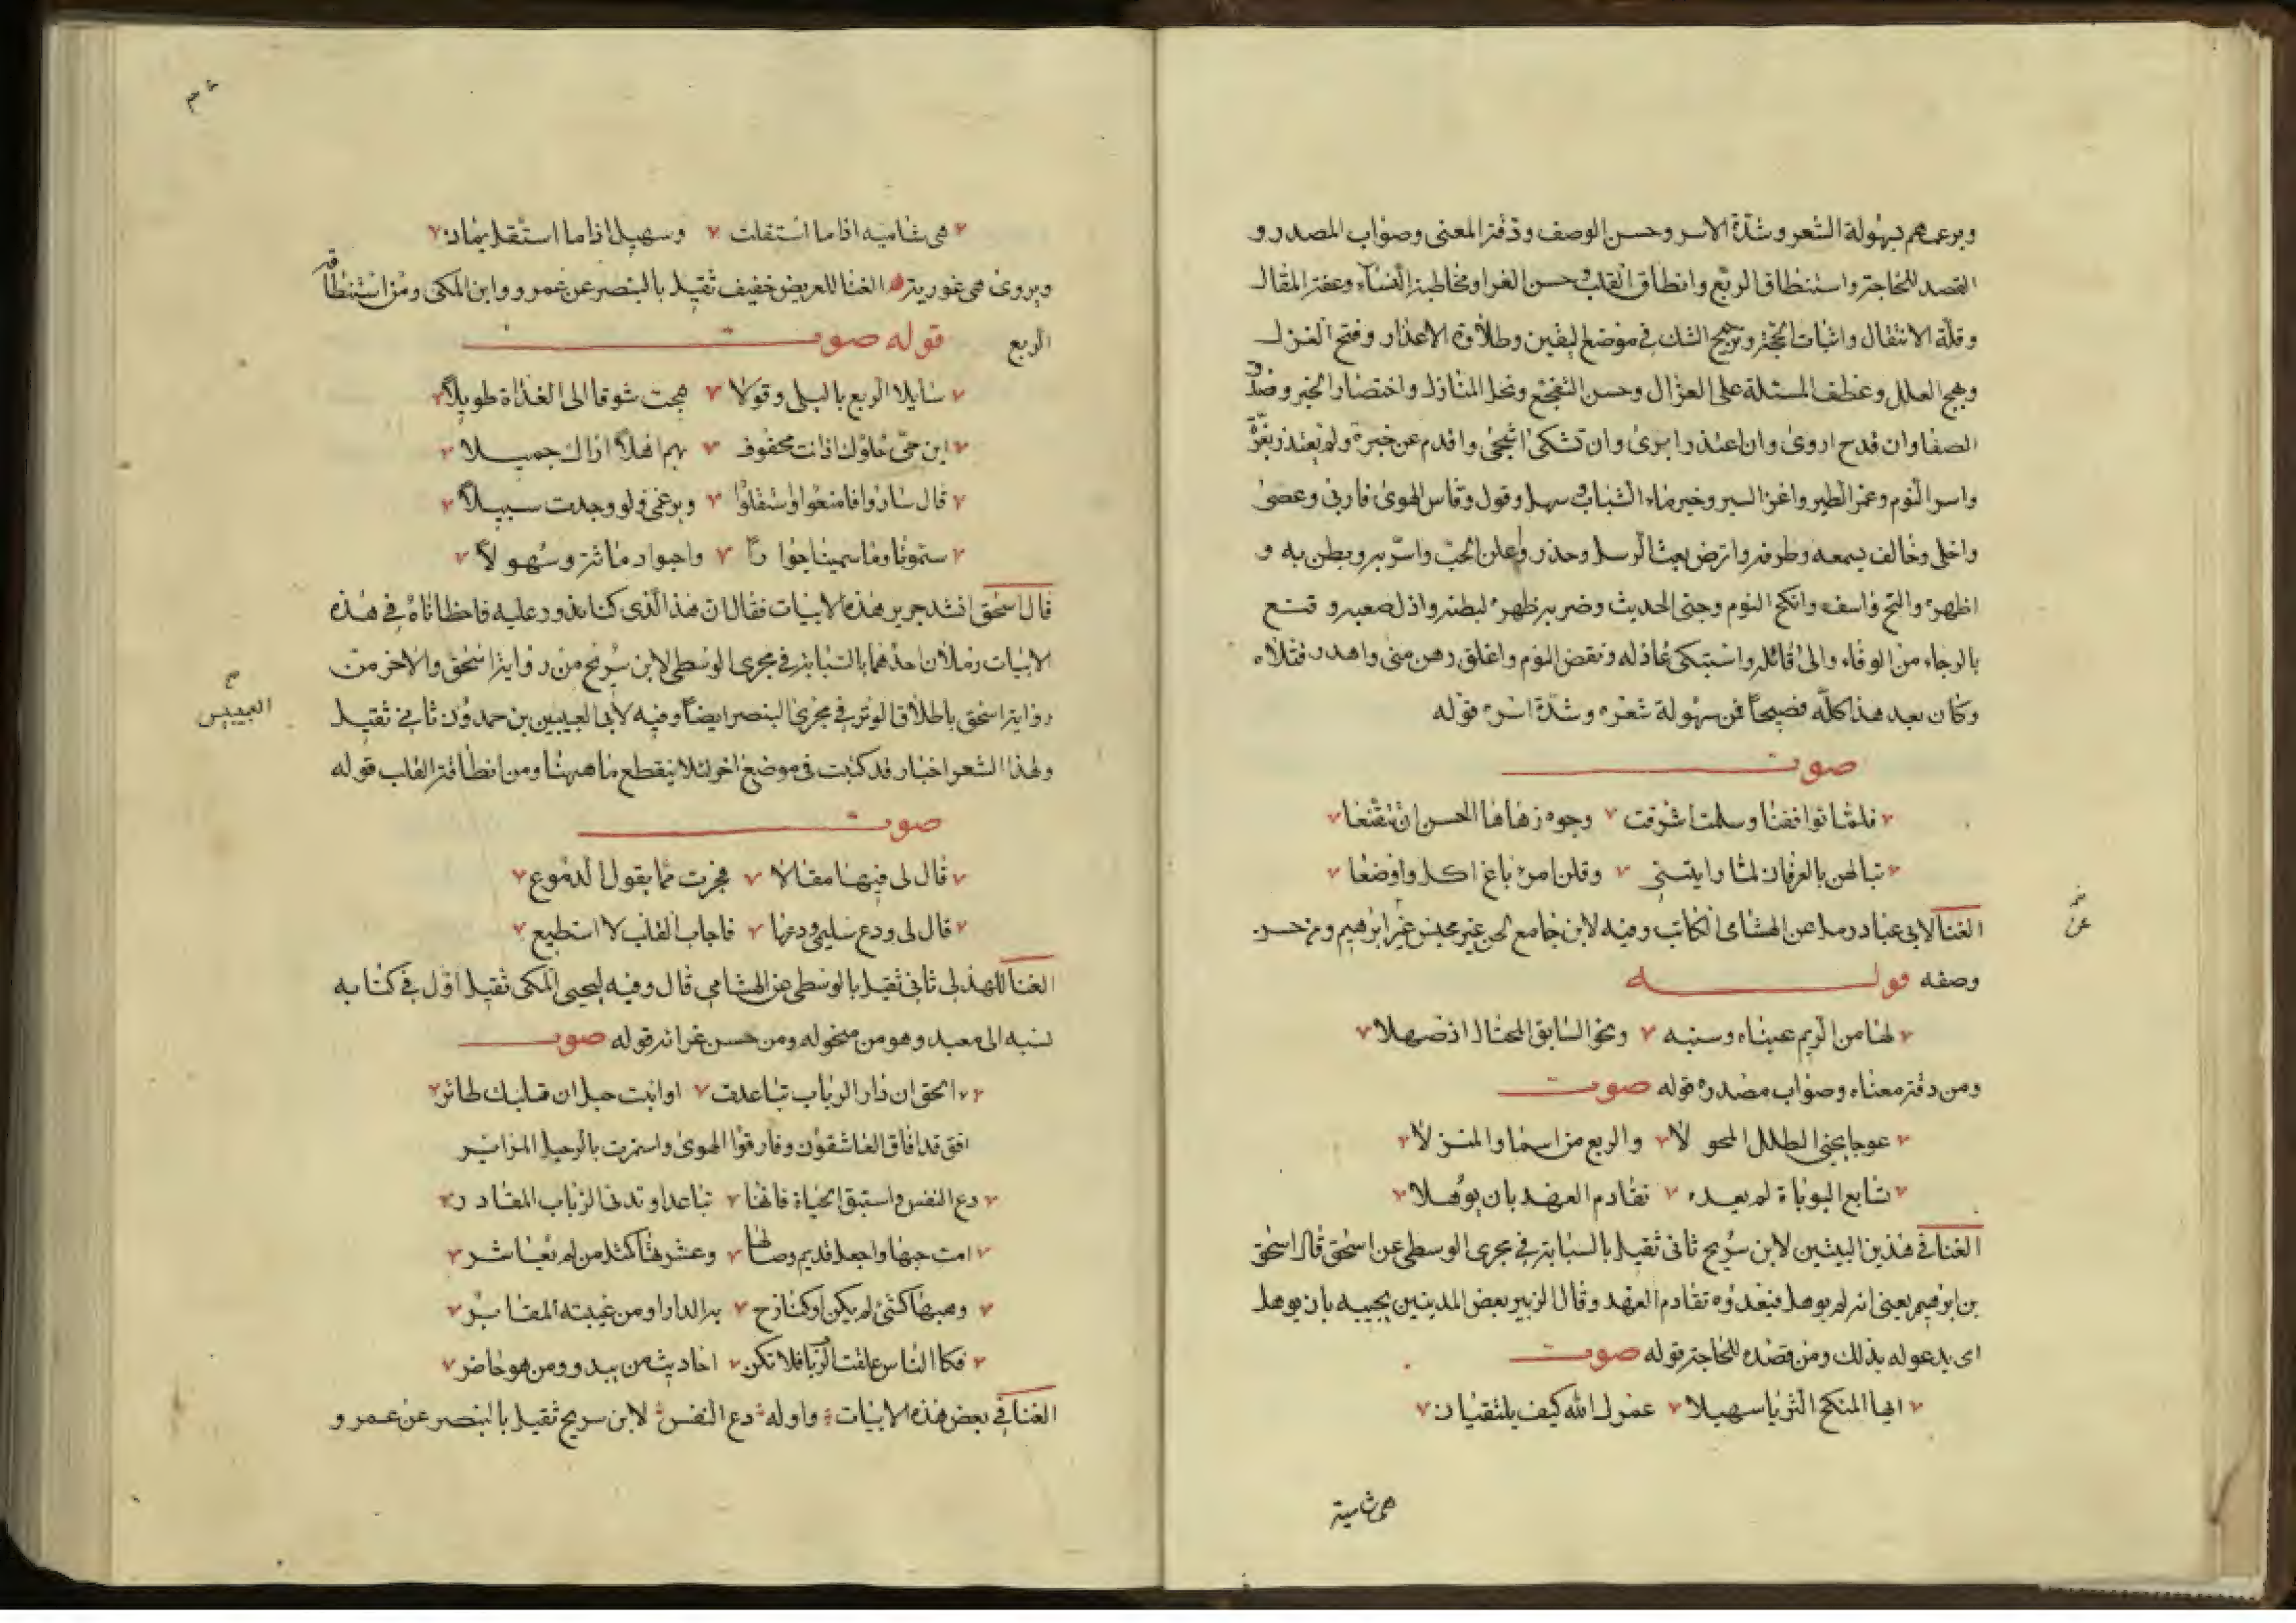 وبرعهم بسهولة الشعر وشدة الاسر وحسن الوصف ودقة المعنى وصواب المصدر و
القصد للحاجة واستنطاق الربع وانطاق القلب وحسن العزا ومخاطبة النساء وعفة المقال
وقلة الانتقال واثبات الحجة وترجيح الشك في موضع اليقين وطلاوة الاعتذار وفتح الغزل
ونهج العلل وعطف المسئلة على العذال وحسن التفجع وبخل المنازل واختصار الخبر وصدق
الصفا وان قدح اروى وان اعتذر ابرى وان تشكى اشجى واقدم عن خبرة ولم يعتذر بغرة
واسر النوم وغم الطير واغز السير وحير ماء الشباب وسهل وقول وقاس الهوى فاربى وعصى
واخلى وخالف بسمعه وطرفه وابرض بعث الرسل وحذر واعلن الحب واسر به وبطن به و
اظهره والتح واسف وانكح النوم وجنى الحديث وضرب ظهره لبطنه واذل صعبه وقنع
بالرجاء من الوفاء والى قاتله واستبكى عاذله ونقض النوم واغلق رهن منى واهدر قتلاه
وكان بعد هذا كله فصيحا فمن سهولة شعره وشدة اسره قوله
صوت
فلما تواقفنا وسلمت اشرقت وجوه زهاها الحسن ان تتقنعا
تبالهن بالعرفان لما راينني وقلن امرء باغ اكل واوضعا
الغنا لابي عباد رمل عن الهشامى الكاتب وفيه لابن جامع لحن غير مجنس عن ابرهيم ومن حسن
عن
وصفه قوله
لها من الريم عيناه وسنته ونخو السابق المختال اذ صهلا
ومن دقة معناه وصواب مصدره قوله صوت
عوجا نحيى الطلل المحولا والربع من اسما والمنزلا
بسابغ البوباة لم يعده تقادم العهد بان يؤهلا
الغنا في هذين البيتين لابن سريج ثاني ثقيل بالسبابة في مجرى الوسطى عن اسحق قال اسحق
بن ابرهيم يعنى انه لم يوهل فيعدوه تقادم العهد وقال الزبير بعض المدينين يجيبه بان يوهل
اى يدعو له بذلك ومن قصده للحاجة قوله صوت
ايها المنكح الثريا سهيلا عمرك الله كيف يلتقيان
هى شامية
هى شامية اذا ما استقلت وسهيل اذا ما استقل يمان
ويروى هى غورية الغنا للغريض خفيف ثقيل بالبنصر عن عمرو وابن المكى ومن استنطاقه
الربع قوله صوت
سايلا الربع بالبلى وقولا هجت شوقا الى الغداة طويلا
اين حى حلوك اذ انت محفوف بهم اهلا اراك جميلا
قال ساروا فامنعوا واستقلوا وبرغمى ولو وجدت سبيلا
ستمونا وما سمينا جوارا واجوا دماثة وسهولا
قال اسحق انشد جرير هذه الابيات فقال ان هذا الذى كنا ندور عليه فاخطاناه في هذه
الابيات رملان احدهما بالسبابة في مجرى الوسطى لابن سريج من رواية اسحق والاخر من
رواية اسحق باطلاق الوتر في مجرى البنصر ايضا وفيه لابى العبيبس بن حمدون ثانى ثقيل
العبيبس
ولهذا الشعر اخبار قد كتبت فى موضع اخر لئلا ينقطع ما ههنا ومن انطاقه القلب قوله
صوت
قال لى فيها مقالا فجرت مما يقول الدموع
قال لى ودع سليمى ودعها فاجاب القلب لا استطيع
الغنا للهذلى ثانى ثقيل بالوسطى عن الهشامى قال وفيه ليحيى المكى ثقيل اول في كتابه
نسبه الى معبد وهو من منحوله ومن حسن عزائه قوله صوت
ءالحق ان دار الرباب تباعدت او انبت حبل ان قلبك طائر
افق قد افاق العاشقون وفارقوا الهوى واستمرت بالرحيل المرائر
دع النفس واستبق الحياة فانما تباعد او تدنى الرباب المقادر
امت حبها واجعل قديم وصالها وعشرتها كمثل من لم تعاشر
وهبها كشئ لم يكن او كنازح به الدار او من غيبته المقابر
فكالناس علقت الربا فلا تكن احاديث من يبدو ومن هو حاضر
الغنا في بعض هذه الابيات واوله دع النفس لابن سريج ثقيل بالبنصر عن عمرو